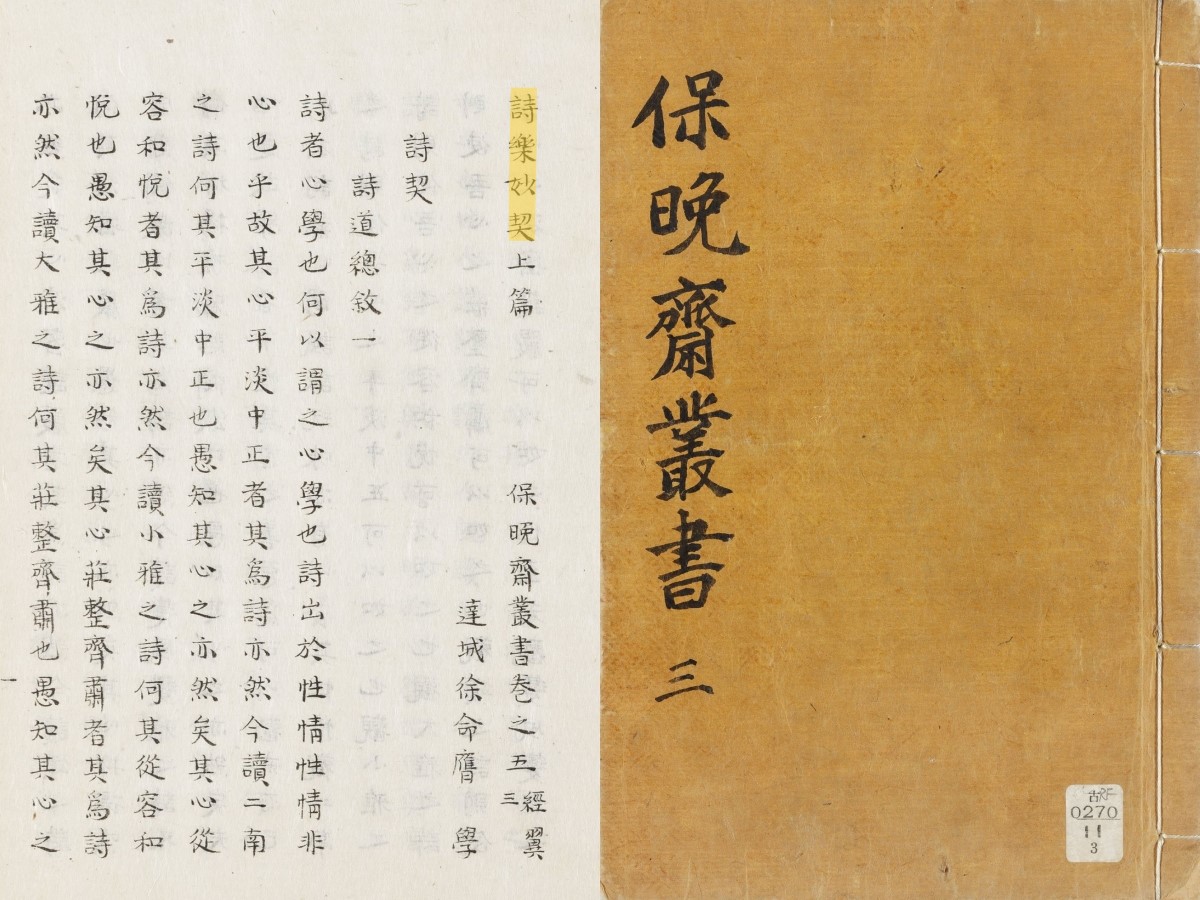 保晚齋叢書 三
0270
11
3
詩樂妙契上篇 保晚齋叢書卷之五 經翼三
達城徐命膺 學
詩契
詩道總敘一
詩者心學也何以謂之心學也詩出於性情性情非
心也乎故其心平淡中正者其爲詩亦然今讀二南
之詩何其平淡中正也愚知其心之亦然矣其心從
容和悅者其爲詩亦然今讀小雅之詩何其從容和
悅也愚知其心之亦然矣其心莊整齊肅者其爲詩
亦然今讀大雅之詩何其莊整齊肅也愚知其心之
一